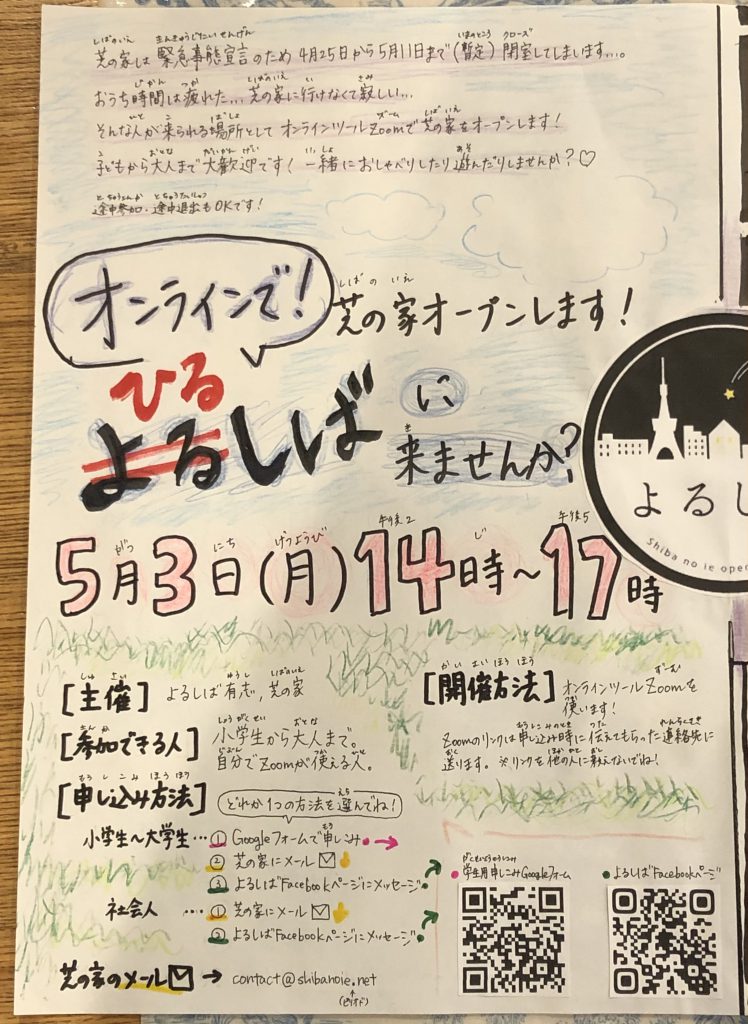 芝の家は 緊急事態宣言のため 4月25日から5月11日まで(暫定) 閉室してしまいます…。
おうち時間は疲れた… 芝の家に行けなくて寂しい…
そんな人が来られる場所として オンラインツールZoomで芝の家をオープンします!
子どもから大人まで大歓迎です! 一緒におしゃべりしたり遊んだりしませんか?♡
途中参加・途中退出もOKです!
オンラインで!
芝の家オープンします!
ひる
よるしばに
来ませんか?
5月3日(月)14時〜17時
午後2 午後5
よるし
Shiba no ie ope
[主催] よるしば有志, 芝の家
[参加できる人] 小学生から大人まで。
自分でZoomが使える人。
[開催方法] オンラインツールZoomを
使います!
Zoomのリンクは申し込み時に伝えてもらった連絡先に
送ります。※リンクを他の人に教えないでね!
[申し込み方法] どれか1つの方法を選んでね!
小学生〜大学生… ① Googleフォームで申しこみ
② 芝の家にメール
③ よるしばFacebookページにメッセージ
社会人 … ① 芝の家にメール
② よるしばFacebookページにメッセージ
芝の家のメール → contact@shibanoie.net
(ピリオド)
学生用申しこみGoogleフォーム
よるしばFacebookページ